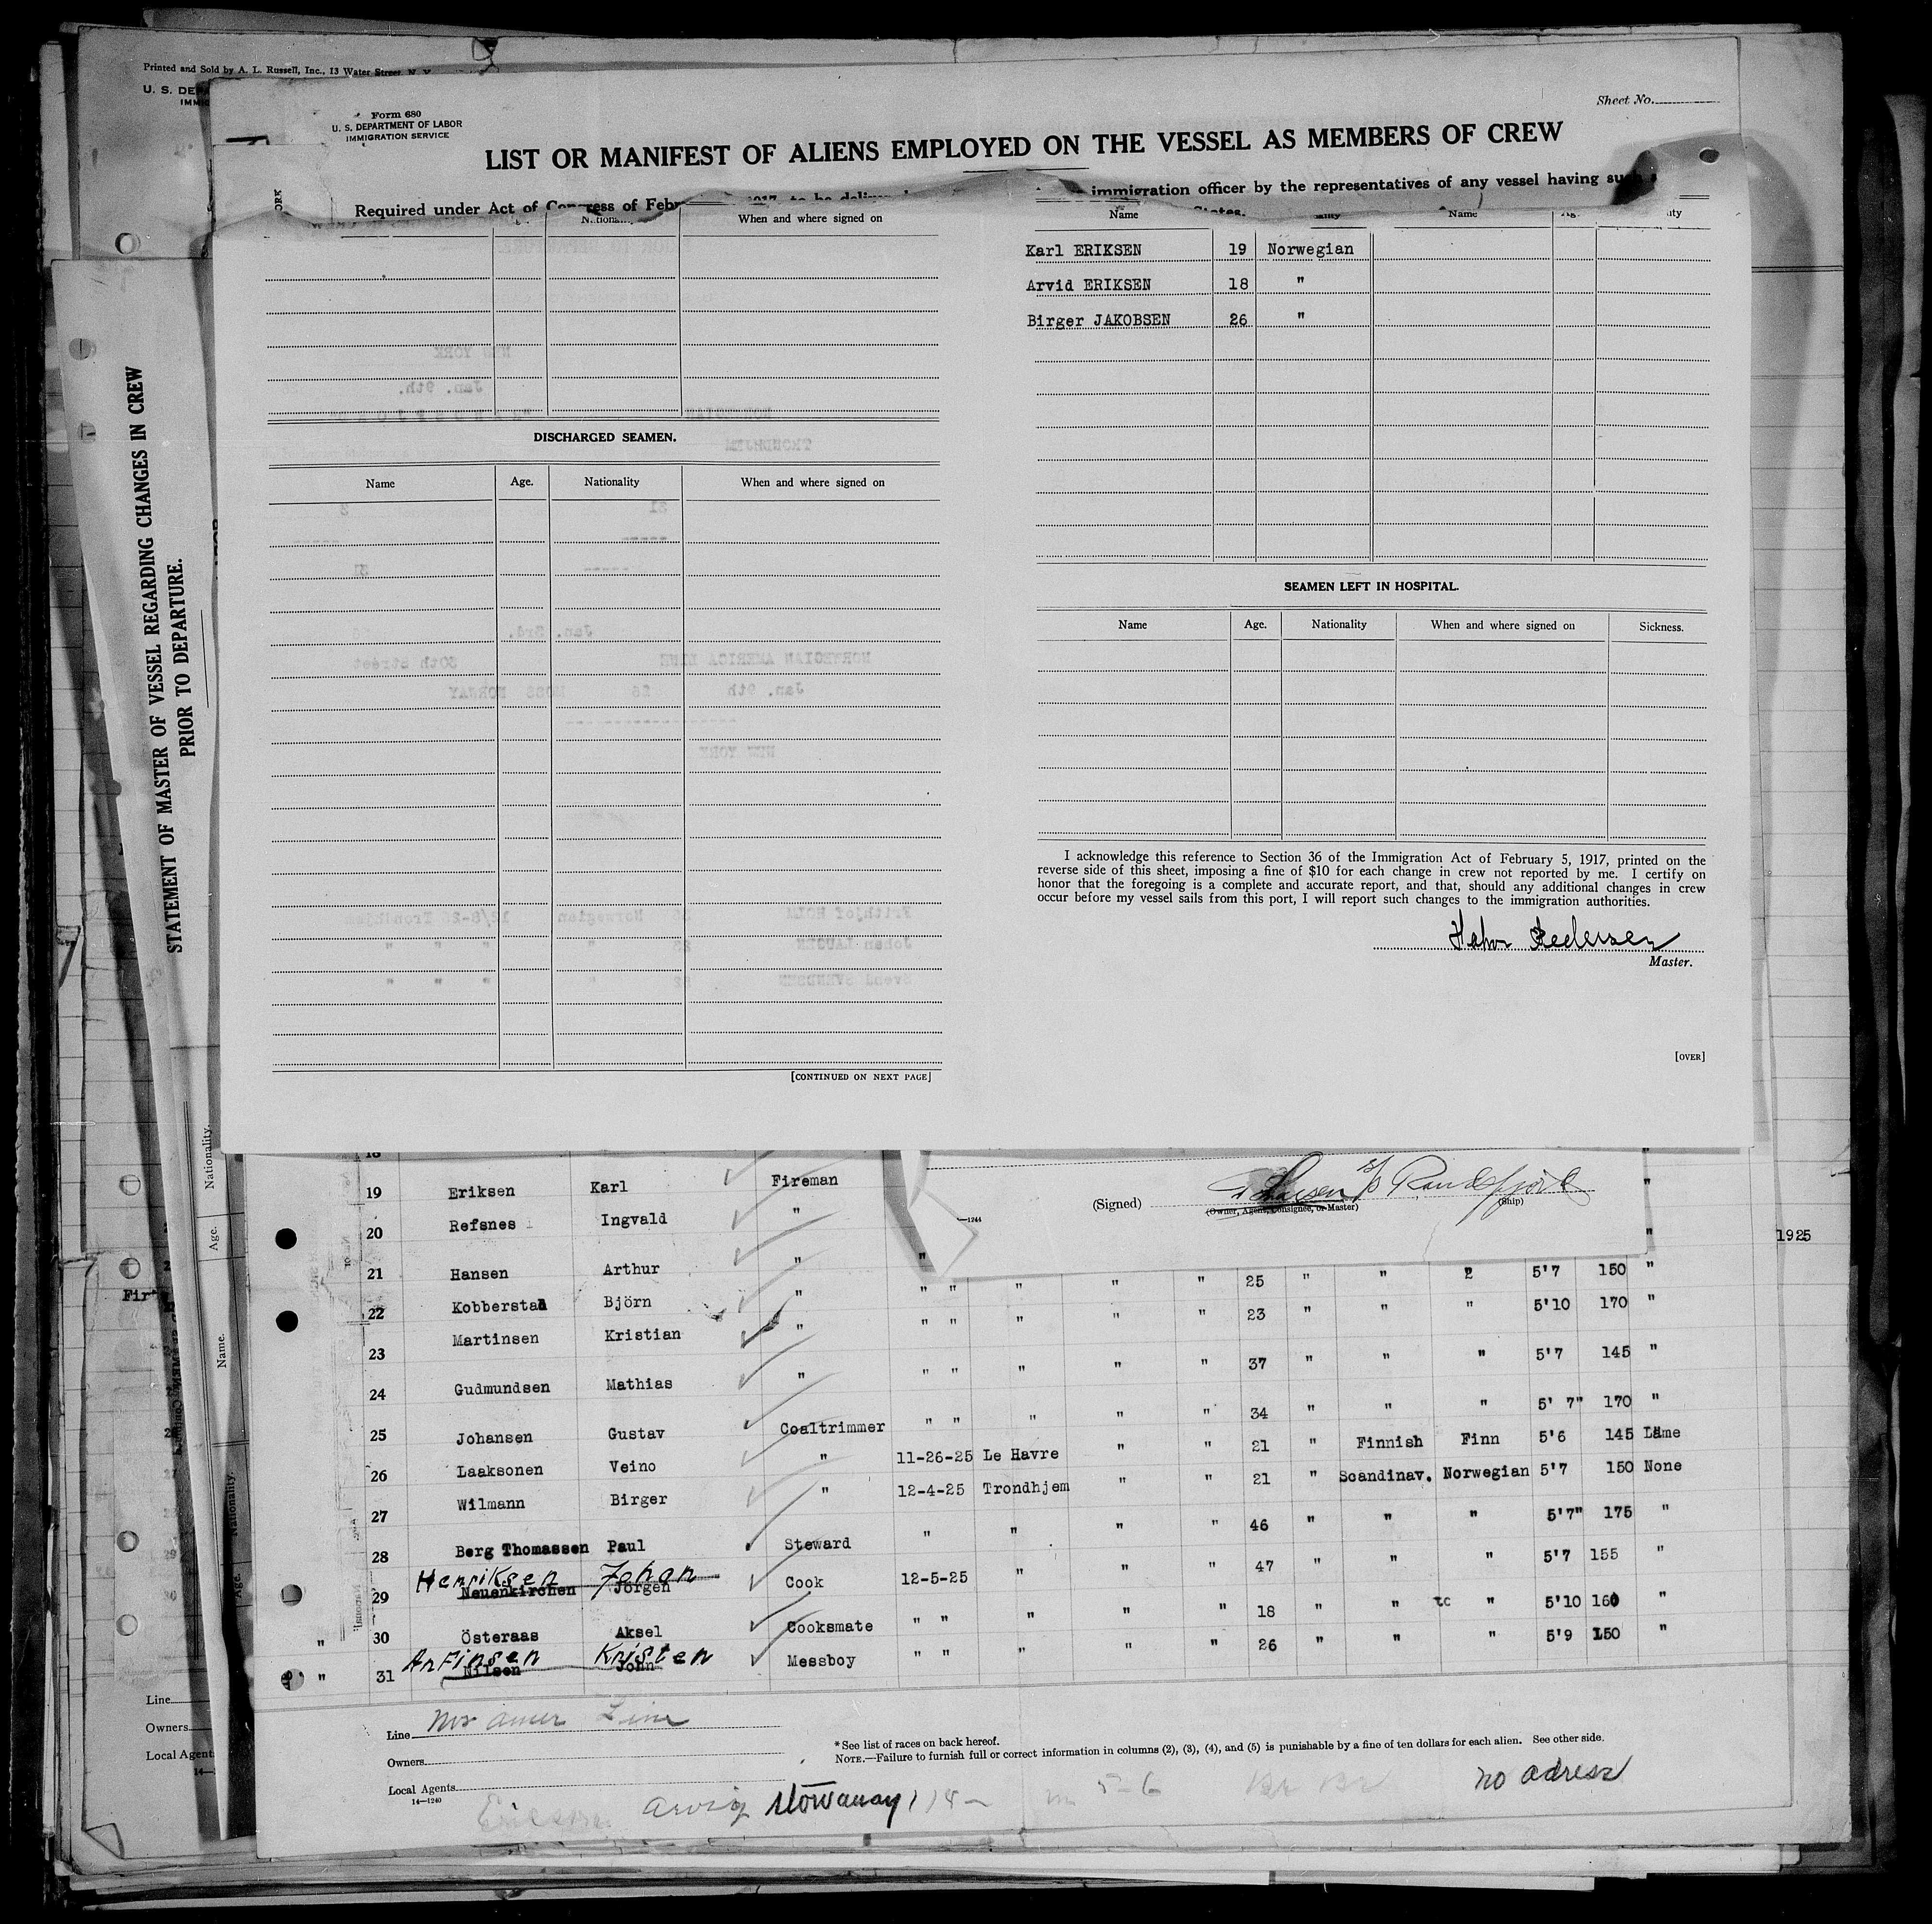 Printed and Sold by A. L. Russell, Inc., 13 Water Street, N. Y.
U. S. DEPA
IMMIG
Sheet No.
Form 680
U. S. DEPARTMENT OF LABOR
IMMIGRATION SERVICE
LIST OR MANIFEST OF ALIENS EMPLOYED ON THE VESSEL AS MEMBERS OF CREW
Required under Act of Congress of Febr 1917, to be deliver immigration officer by the representatives of any vessel having such
STATEMENT OF MASTER OF VESSEL REGARDING CHANGES IN CREW
PRIOR TO DEPARTURE.
When and where signed on
DISCHARGED SEAMEN.
Name Age. Nationality When and where signed on
[CONTINUED ON NEXT PAGE]
Name Name
Karl ERIKSEN 19 Norwegian
Arvid ERIKSEN 18 "
Birger JAKOBSEN 26 "
SEAMEN LEFT IN HOSPITAL.
Name Age. Nationality When and where signed on Sickness.
I acknowledge this reference to Section 36 of the Immigration Act of February 5, 1917, printed on the
reverse side of this sheet, imposing a fine of $10 for each change in crew not reported by me. I certify on
honor that the foregoing is a complete and accurate report, and that, should any additional changes in crew
occur before my vessel sails from this port, I will report such changes to the immigration authorities.
Pedersen
Master.
[OVER]
(Signed) s/s Randsfjord
(Owner, Agent, Consignee, or Master) (Ship)
—1244
1925
18
19 Eriksen Karl Fireman "
20 Refsnes Ingvald " "
21 Hansen Arthur " " " " " " 25 " " 2 5'7 150 "
22 Kobberstad Björn " " " " " " 23 " " " 5'10 170 "
23 Martinsen Kristian " " " " " " 37 " " " 5'7 145 "
24 Gudmundsen Mathias " " " " " " 34 " " " 5' 7" 170 "
25 Johansen Gustav Coaltrimmer 11-26-25 Le Havre " " 21 " Finnish Finn 5'6 145 Lame
26 Laaksonen Veino " 12-4-25 Trondhjem " " 21 " Scandinav. Norwegian 5'7 150 None
27 Wilmann Birger " " " " " 46 " " " 5'7" 175 "
28 Berg Thomassen Paul Steward 12-5-25 " " " 47 " " " 5'7 155 "
Henriksen Johan
29 Neuenkirchen Jörgen Cook " " " " " 18 " " " 5'10 160 "
" 30 Österaas Aksel Cooksmate " " " " " 26 " " " 5'9 150 "
Arfinsen Kristen
" 31 Nilsen John Messboy
Line Nor Amer Line
Owners
Local Agents
14—1240
* See list of races on back hereof.
NOTE.—Failure to furnish full or correct information in columns (2), (3), (4), and (5) is punishable by a fine of ten dollars for each alien. See other side.
Arvig Stowaway 18 5-6 no adress
Line
Owners
Local Agent
Nationality.
Age.
Name.
Nationality.
Age.
Fir